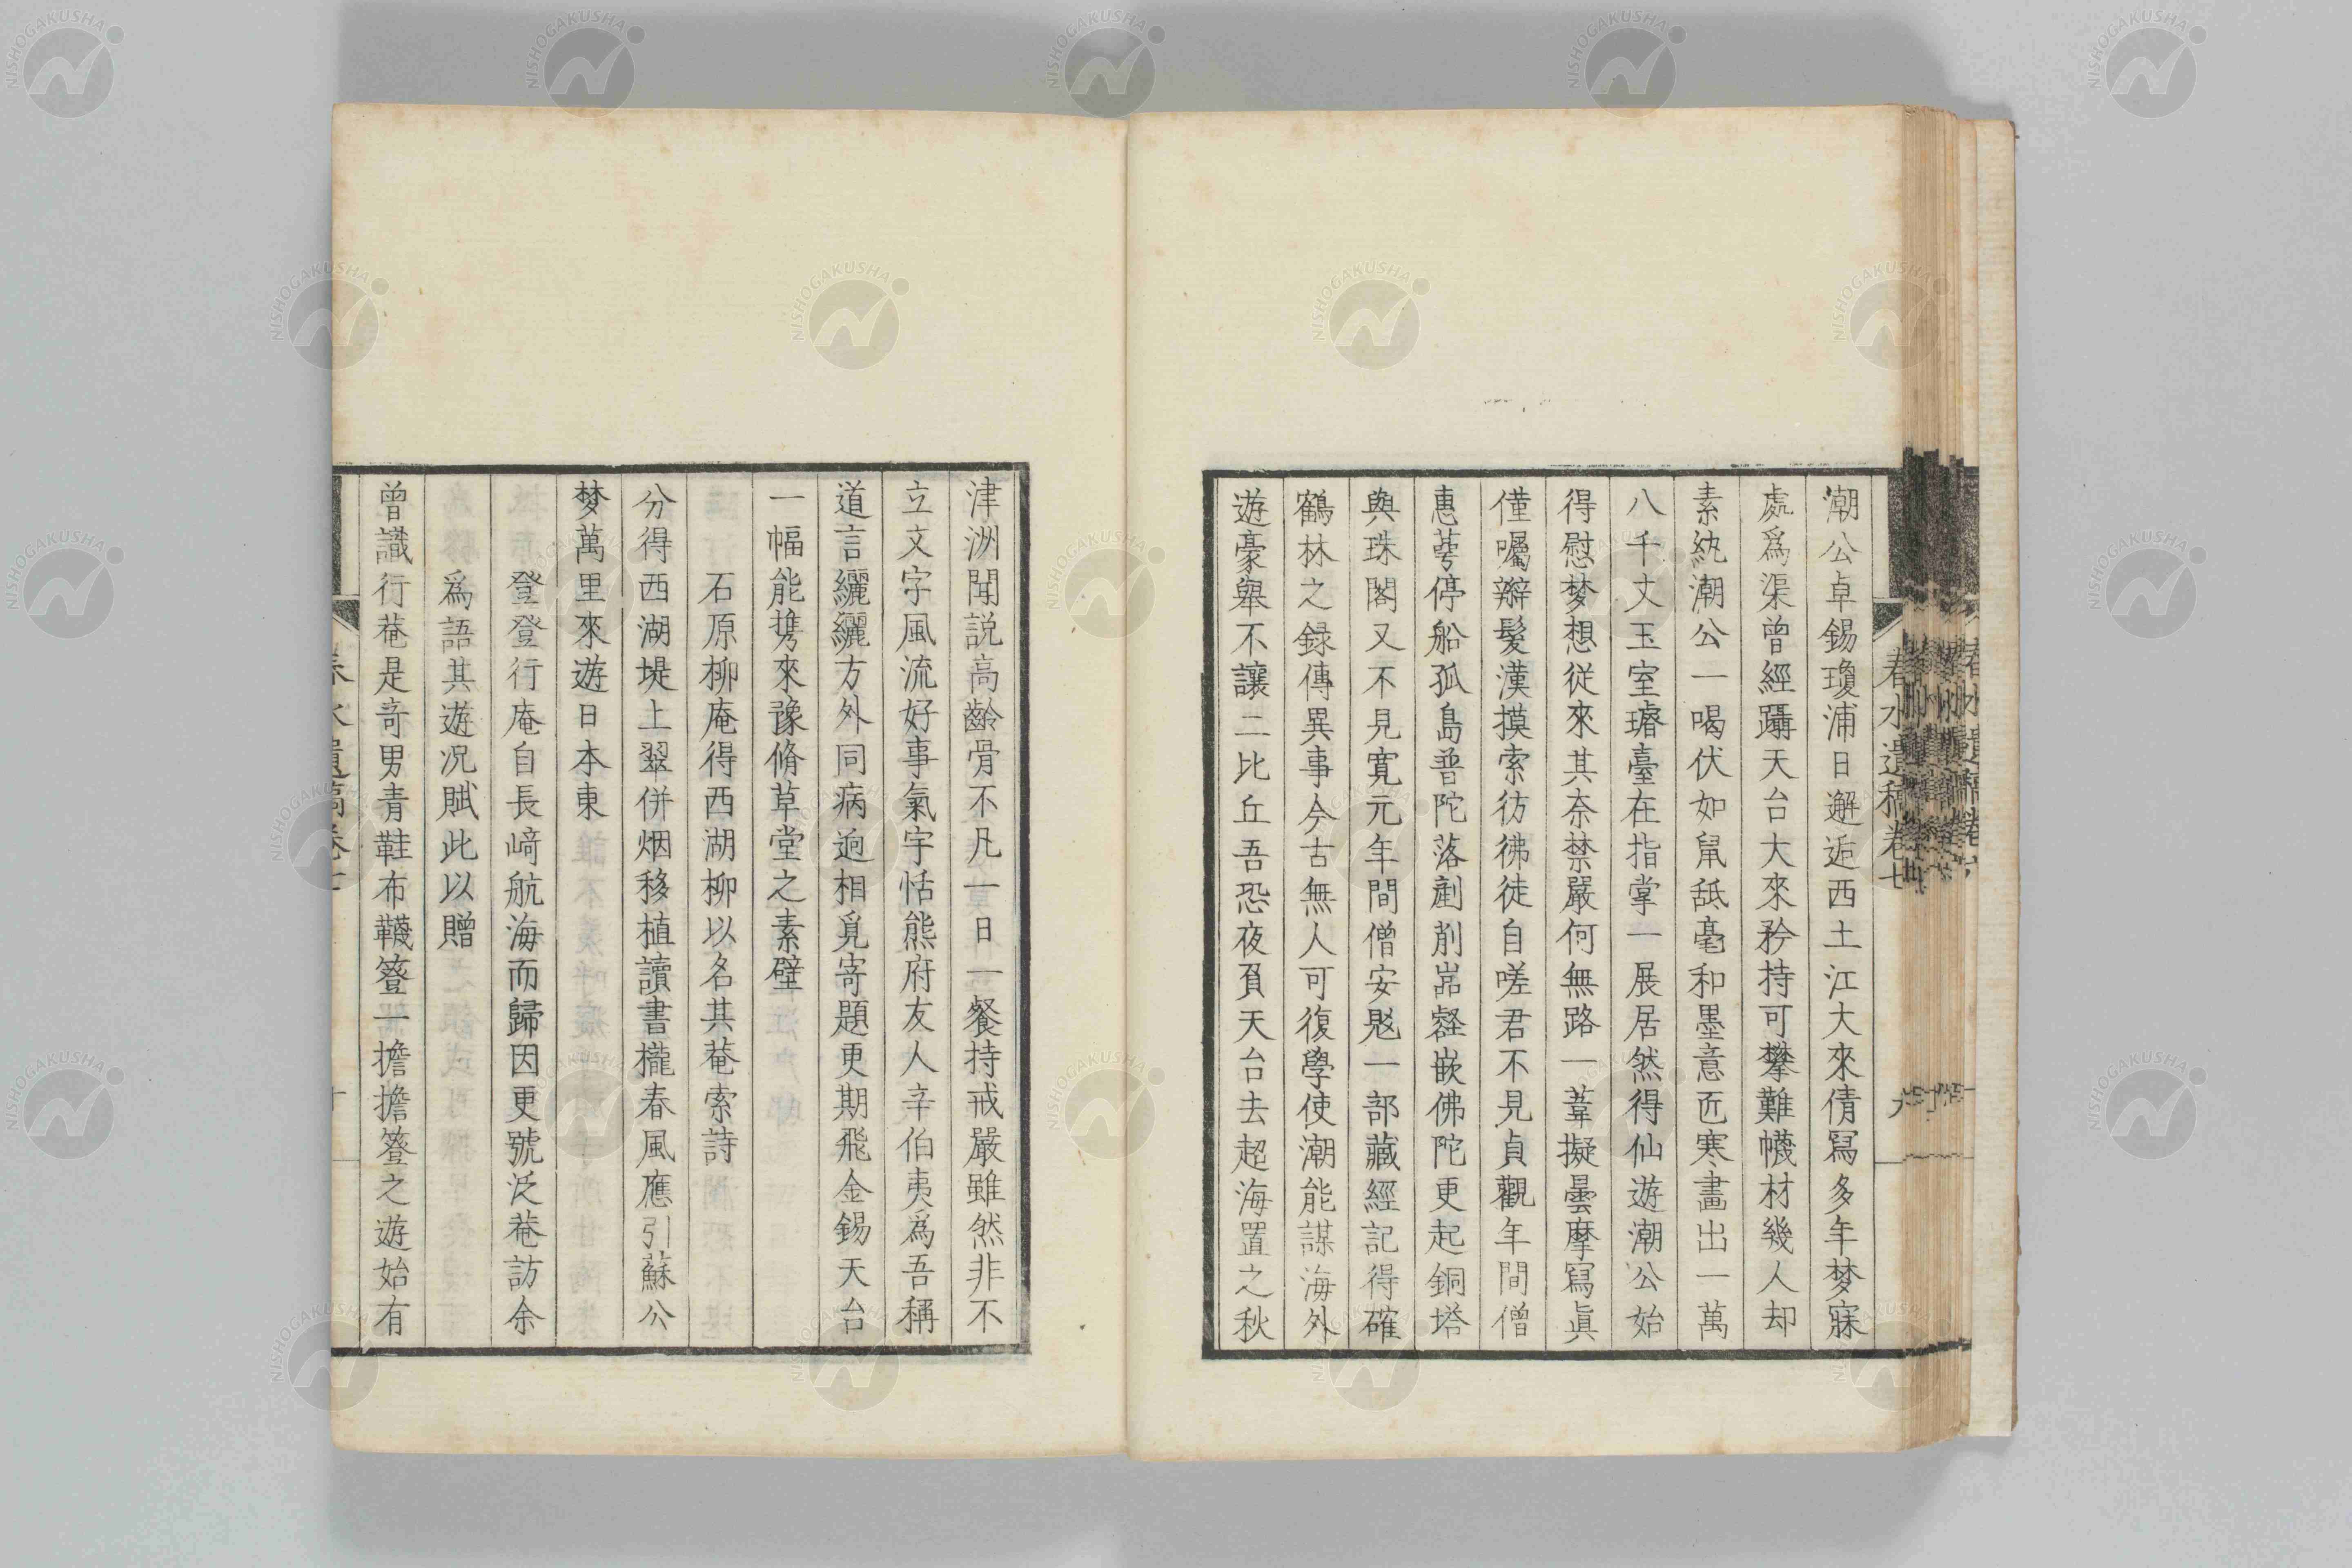 潮公卓錫瓊浦日邂逅西土江大來倩冩多年梦寐
處爲渠曾經躡天台大來矜持可攀難幭材幾人却
素紈潮公一喝伏如鼠舐毫和墨意匠寒畫出一萬
八千丈玉室璿臺在指掌一展居然得仙遊潮公始
得慰梦想從來其奈禁嚴何無路一葦擬曇摩寫眞
僅囑辮髮漢摸索彷彿徒自嗟君不見貞觀年間僧
惠萼停船孤島普陀落剷削嵓壑嵌佛陀更起銅塔
與珠閣又不見寛元年間僧安覐一部藏經記得確
鶴林之録傳異事今古無人可復學使潮能謀海外
遊豪舉不讓二比丘吾恐夜負天台去超海置之秋
春水遺稿卷七
九
津洲聞説高齡骨不凡一日一餐持戒嚴雖然非不
立文字風流好事氣宇恬熊府友人辛伯夷爲吾稱
道言纚纚方外同病逈相覓寄題更期飛金錫天台
一幅能擕來豫脩草堂之素壁
石原柳庵得西湖柳以名其菴索詩
分得西湖堤上翠併烟移植讀書櫳春風應引蘇公
梦萬里來遊日本東
登登行庵自長﨑航海而歸因更號泛菴訪余
爲語其遊况賦此以贈
曾識行菴是奇男青鞋布韈簦一擔擔簦之遊始有
春水遺稿卷七
十
NISHOGAKUSHA